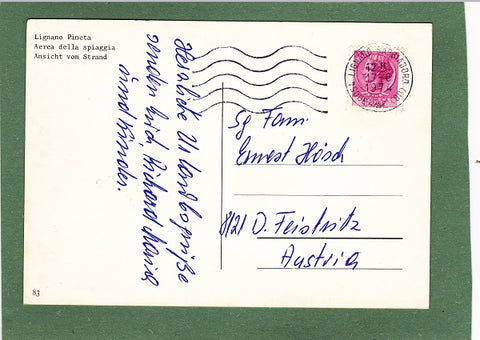 Lignano Pineta
Aerea della spiaggia
Ansicht vom Strand
Herzliche Urlaubsgrüße
senden Euch Richard Maria
und Kinder.
1974
Sg Fam.
Ernest Hösch
8121 D. Feistritz
Austria
83